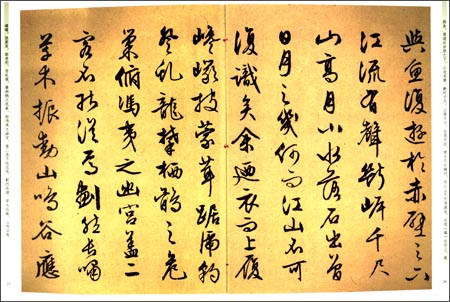 與魚復遊於赤壁之下
江流有聲斷岸千尺
山高月小水落石出曾
日月之幾何而江山不可
復識矣余迺衣而上履
巉巖披蒙茸踞虎豹
登虬龍攀栖鶻之危
巢俯馮夷之幽宮蓋二
客不能從焉劃然長嘯
草木振動山鳴谷應